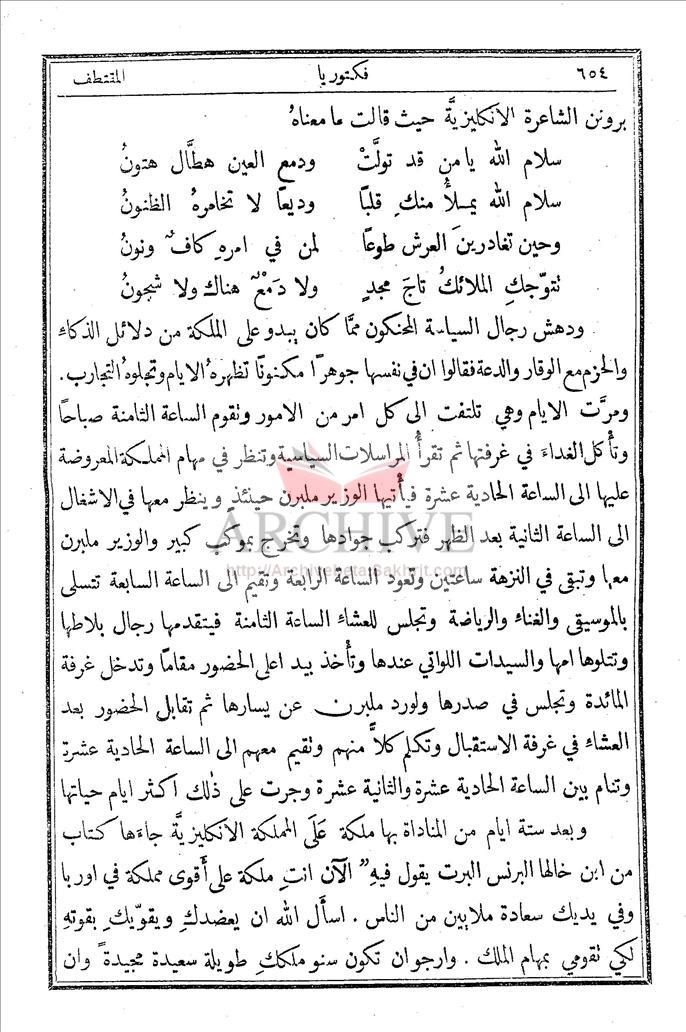 ٦٥٤ فكتوريا المقتطف
برونن الشاعرة الانكليزيَّة حيث قالت ما معناهُ
سلام الله يا من قد تولَّتْ ودمع العين هطَّال هتونُ
سلام الله يملأُ منكِ قلبًا وديعًا لا تخامرهُ الظنونُ
وحين تغادرينَ العرش طوعًا لمن في امرهِ كافٌ ونونُ
تتوّجكِ الملائكُ تاجَ مجدٍ ولا دَمْعٌ هناك ولا شجونُ
ودهش رجال السياسة المحنكون ممَّا كان يبدو على الملكة من دلائل الذكاء
والحزم مع الوقار والدعة فقالوا ان في نفسها جوهرًا مكنونًا تظهرهُ الايام وتجلوهُ التجارب .
ومرَّت الايام وهي تلتفت الى كل امر من الامور وتقوم الساعة الثامنة صباحًا
وتأكل الغداءَ في غرفتها ثم تقرأُ المراسلات السياسية وتنظر في مهام المملكة المعروضة
عليها الى الساعة الحادية عشرة فيأتيها الوزير ملبرن حينئذٍ وينظر معها في الاشغال
الى الساعة الثانية بعد الظهر فتركب جوادها وتخرج بموكب كبير والوزير ملبرن
معها وتبقى في النزهة ساعتين وتعود الساعة الرابعة وتقيم الى الساعة السابعة تتسلى
بالموسيقى والغناء والرياضة وتجلس للعشاء الساعة الثامنة فيتقدمها رجال بلاطها
وتتلوها امها والسيدات اللواتي عندها وتأخذ بيد اعلى الحضور مقامًا وتدخل غرفة
المائدة وتجلس في صدرها ولورد ملبرن عن يسارها ثم تقابل الحضور بعد
العشاء في غرفة الاستقبال وتكلم كلاًّ منهم وتقيم معهم الى الساعة الحادية عشرة
وتنام بين الساعة الحادية عشرة والثانية عشرة وجرت على ذلك اكثر ايام حياتها
وبعد ستة ايام من المناداة بها ملكة عَلَى المملكة الانكليزيَّة جاءَها كتاب
من ابن خالها البرنس البرت يقول فيهِ " الآن انتِ ملكة على أقوى مملكة في اوربا
وفي يديك سعادة ملايين من الناس . اسأل الله ان يعضدكِ ويقوّيكِ بقوتهِ
لكي تقومي بمهام الملك . وارجو ان تكون سنو ملككِ طويلة سعيدة مجيدة وان
ARCHIVE
http://Archivebeta.Sakhrit.com